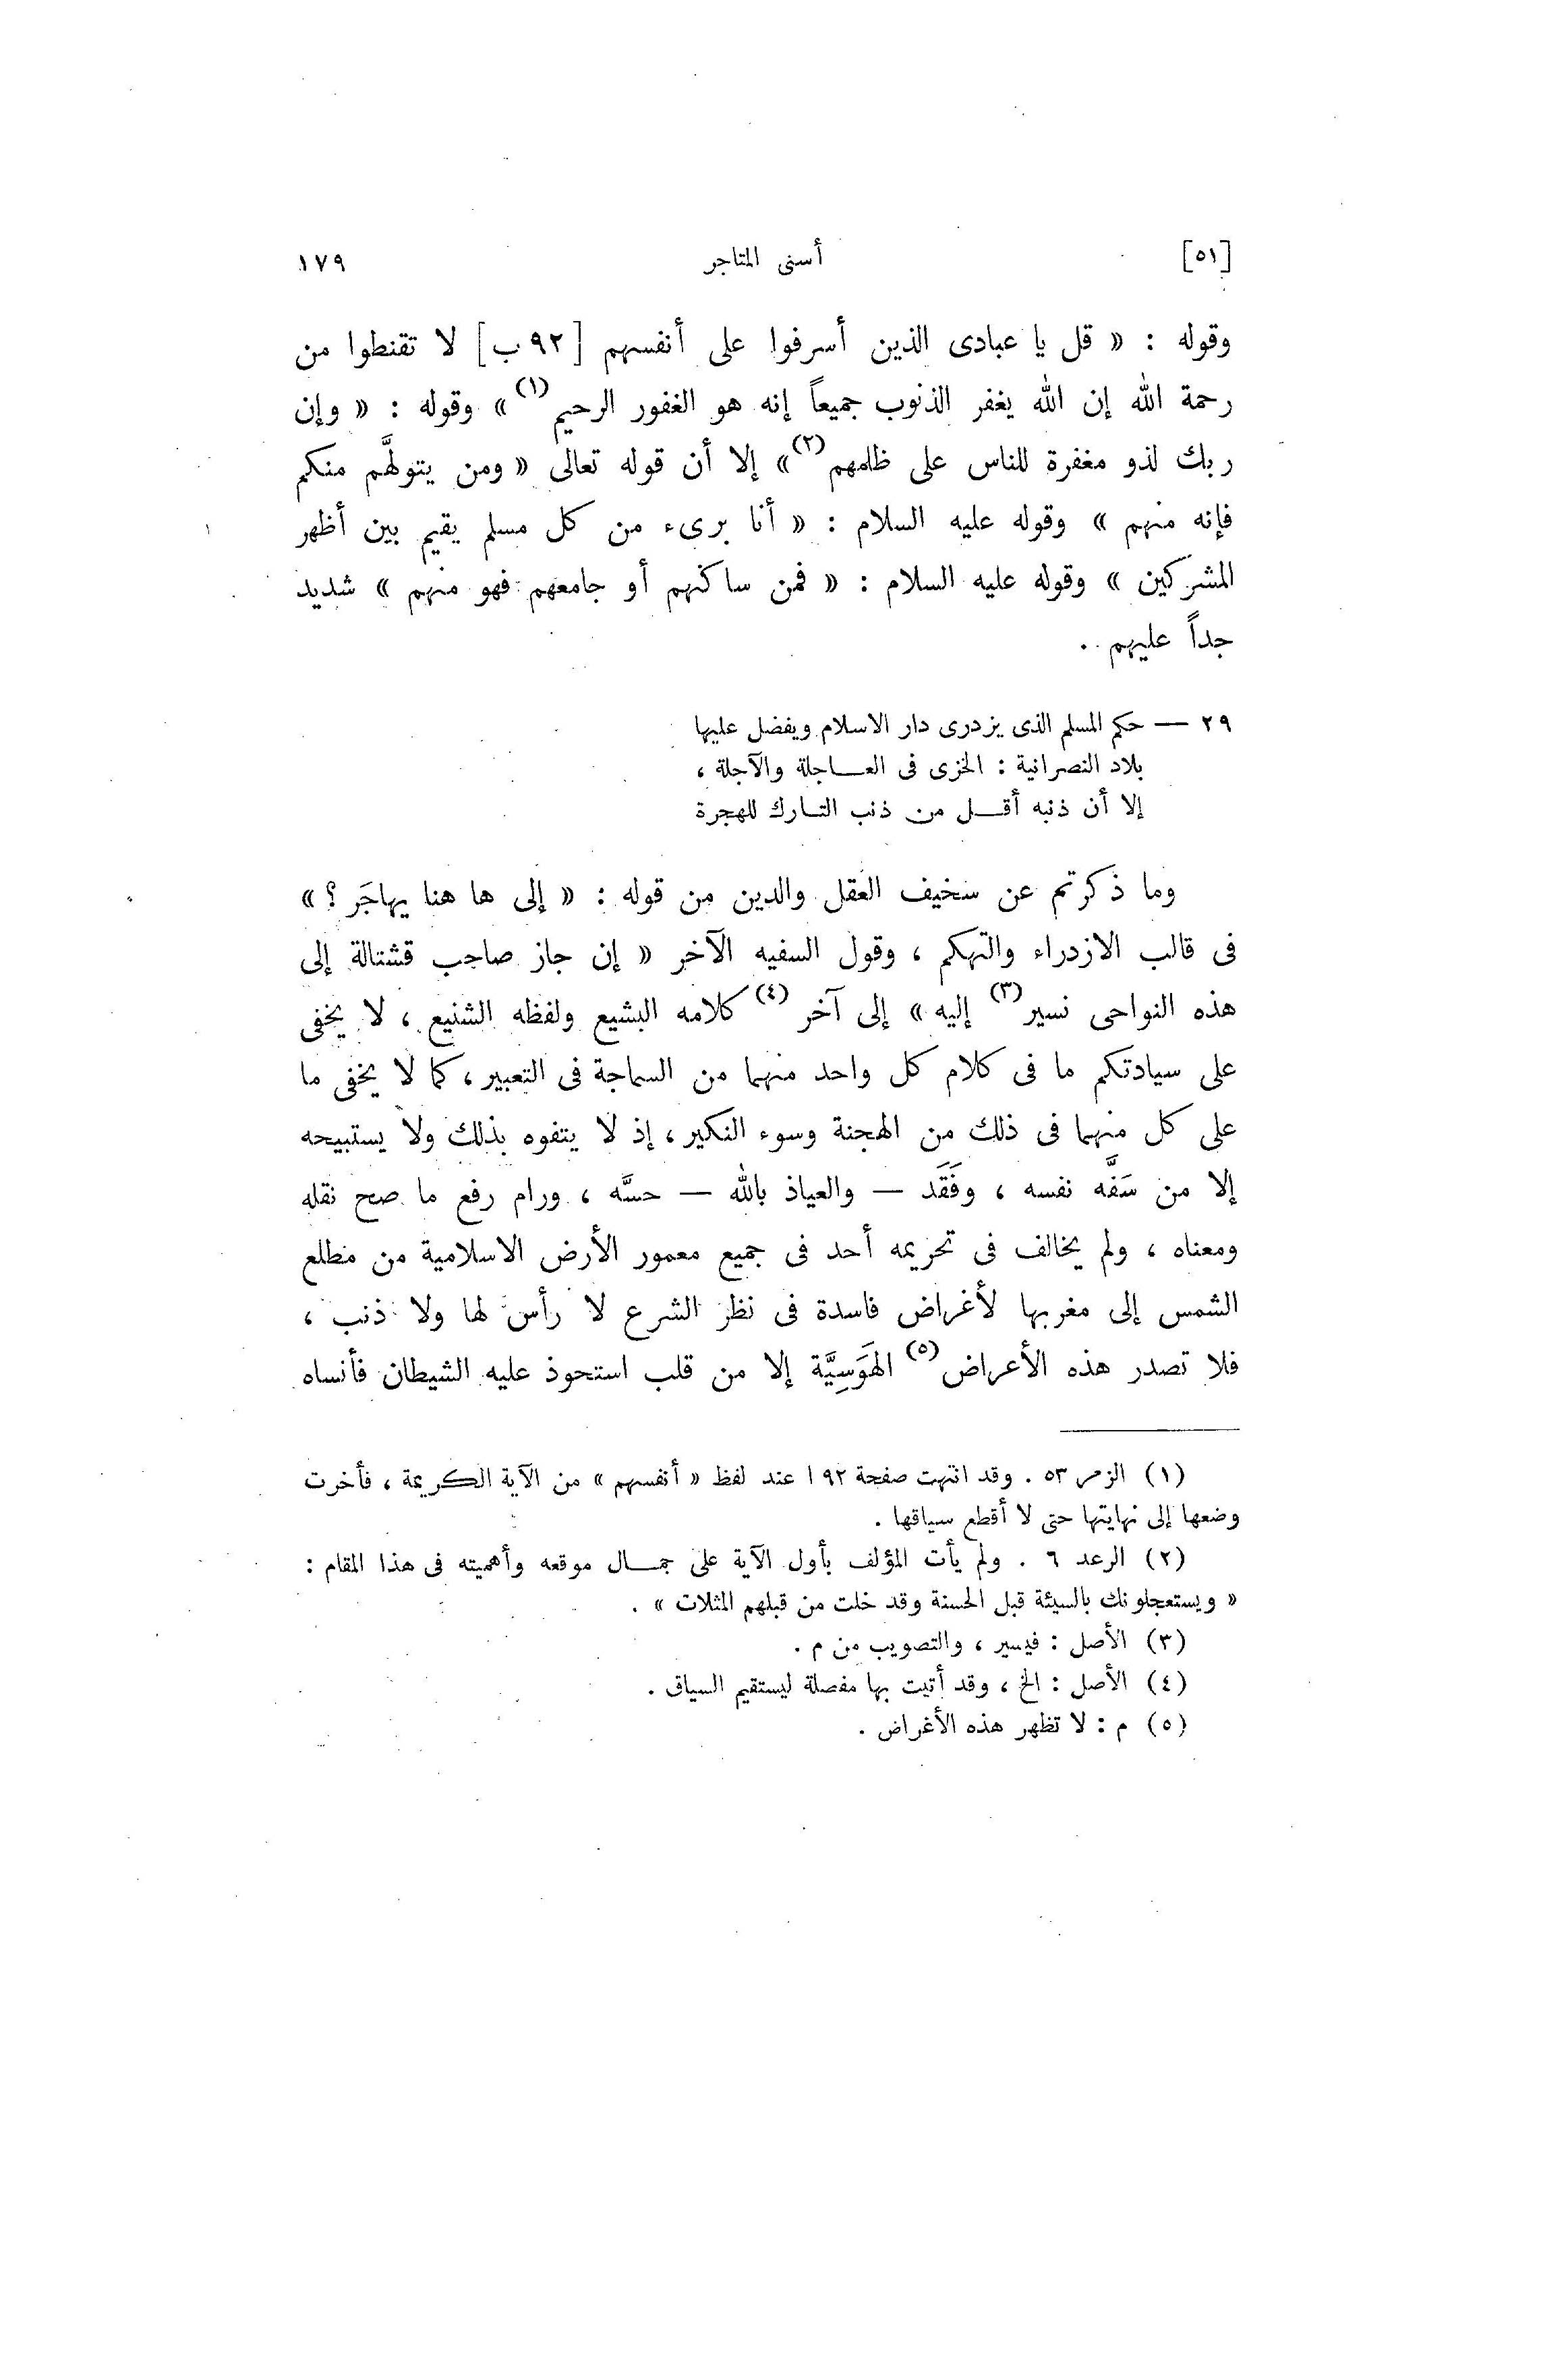 [٥١] أسنى المتاجر ١٧٩
وقوله : « قل يا عبادى الذين أسرفوا على أنفسهم [ ٩٢ ب ] لا تقنطوا من
رحمة الله إن الله يغفر الذنوب جميعاً إنه هو الغفور الرحيم (١) » وقوله : « وإن
ربك لذو مغفرة للناس على ظلمهم (٢) » إلا أن قوله تعالى « ومن يتولهَّم منكم
فإنه منهم » وقوله عليه السلام : « أنا برىء من كل مسلم يقيم بين أظهر
المشركين » وقوله عليه السلام : « فمن ساكنهم أو جامعهم فهو منهم » شديد
جداً عليهم .
٢٩ — حكم المسلم الذى يزدرى دار الاسلام ويفضل عليها
بلاد النصرانية : الخزى فى العـــاجلة والآجلة ،
إلا أن ذنبه أقـــل من ذنب التـارك للهجرة
وما ذكرتم عن سخيف العقل والدين من قوله : « إلى ها هنا يهاجَر ؟ »
فى قالب الازدراء والتهكم ، وقول السفيه الآخر « إن جاز صاحب قشتالة إلى
هذه النواحى نسير (٣) إليه » إلى آخر (٤) كلامه البشيع ولفظه الشنيع ، لا يخفى
على سيادتكم ما فى كلام كل واحد منهما من السماجة فى التعبير ، كما لا يخفى ما
على كل منهما فى ذلك من الهجنة وسوء النكير ، إذ لا يتفوه بذلك ولا يستبيحه
إلا من سَفَّه نفسه ، وفَقَد — والعياذ بالله — حسَّه ، ورام رفع ما صح نقله
ومعناه ، ولم يخالف فى تحريمه أحد فى جميع معمور الأرض الاسلامية من مطلع
الشمس إلى مغربها لأغراض فاسدة فى نظر الشرع لا رأس لها ولا ذنب ،
فلا تصدر هذه الأعراض (٥) الهَوَسِيَّة إلا من قلب استحوذ عليه الشيطان فأنساه
(١) الزمر ٥٣ . وقد انتهت صفحة ٩٢ ا عند لفظ « أنفسهم » من الآية الكريمة ، فأخرت
وضعها إلى نهايتها حتى لا أقطع سياقها .
(٢) الرعد ٦ . ولم يأت المؤلف بأول الآية على جمـــال موقعه وأهميته فى هذا المقام :
« ويستعجلونك بالسيئة قبل الحسنة وقد خلت من قبلهم المثلات » .
(٣) الأصل : فيسير ، والتصويب من م .
(٤) الأصل : الخ ، وقد أتيت بها مفصلة ليستقيم السياق .
(٥) م : لا تظهر هذه الأغراض .